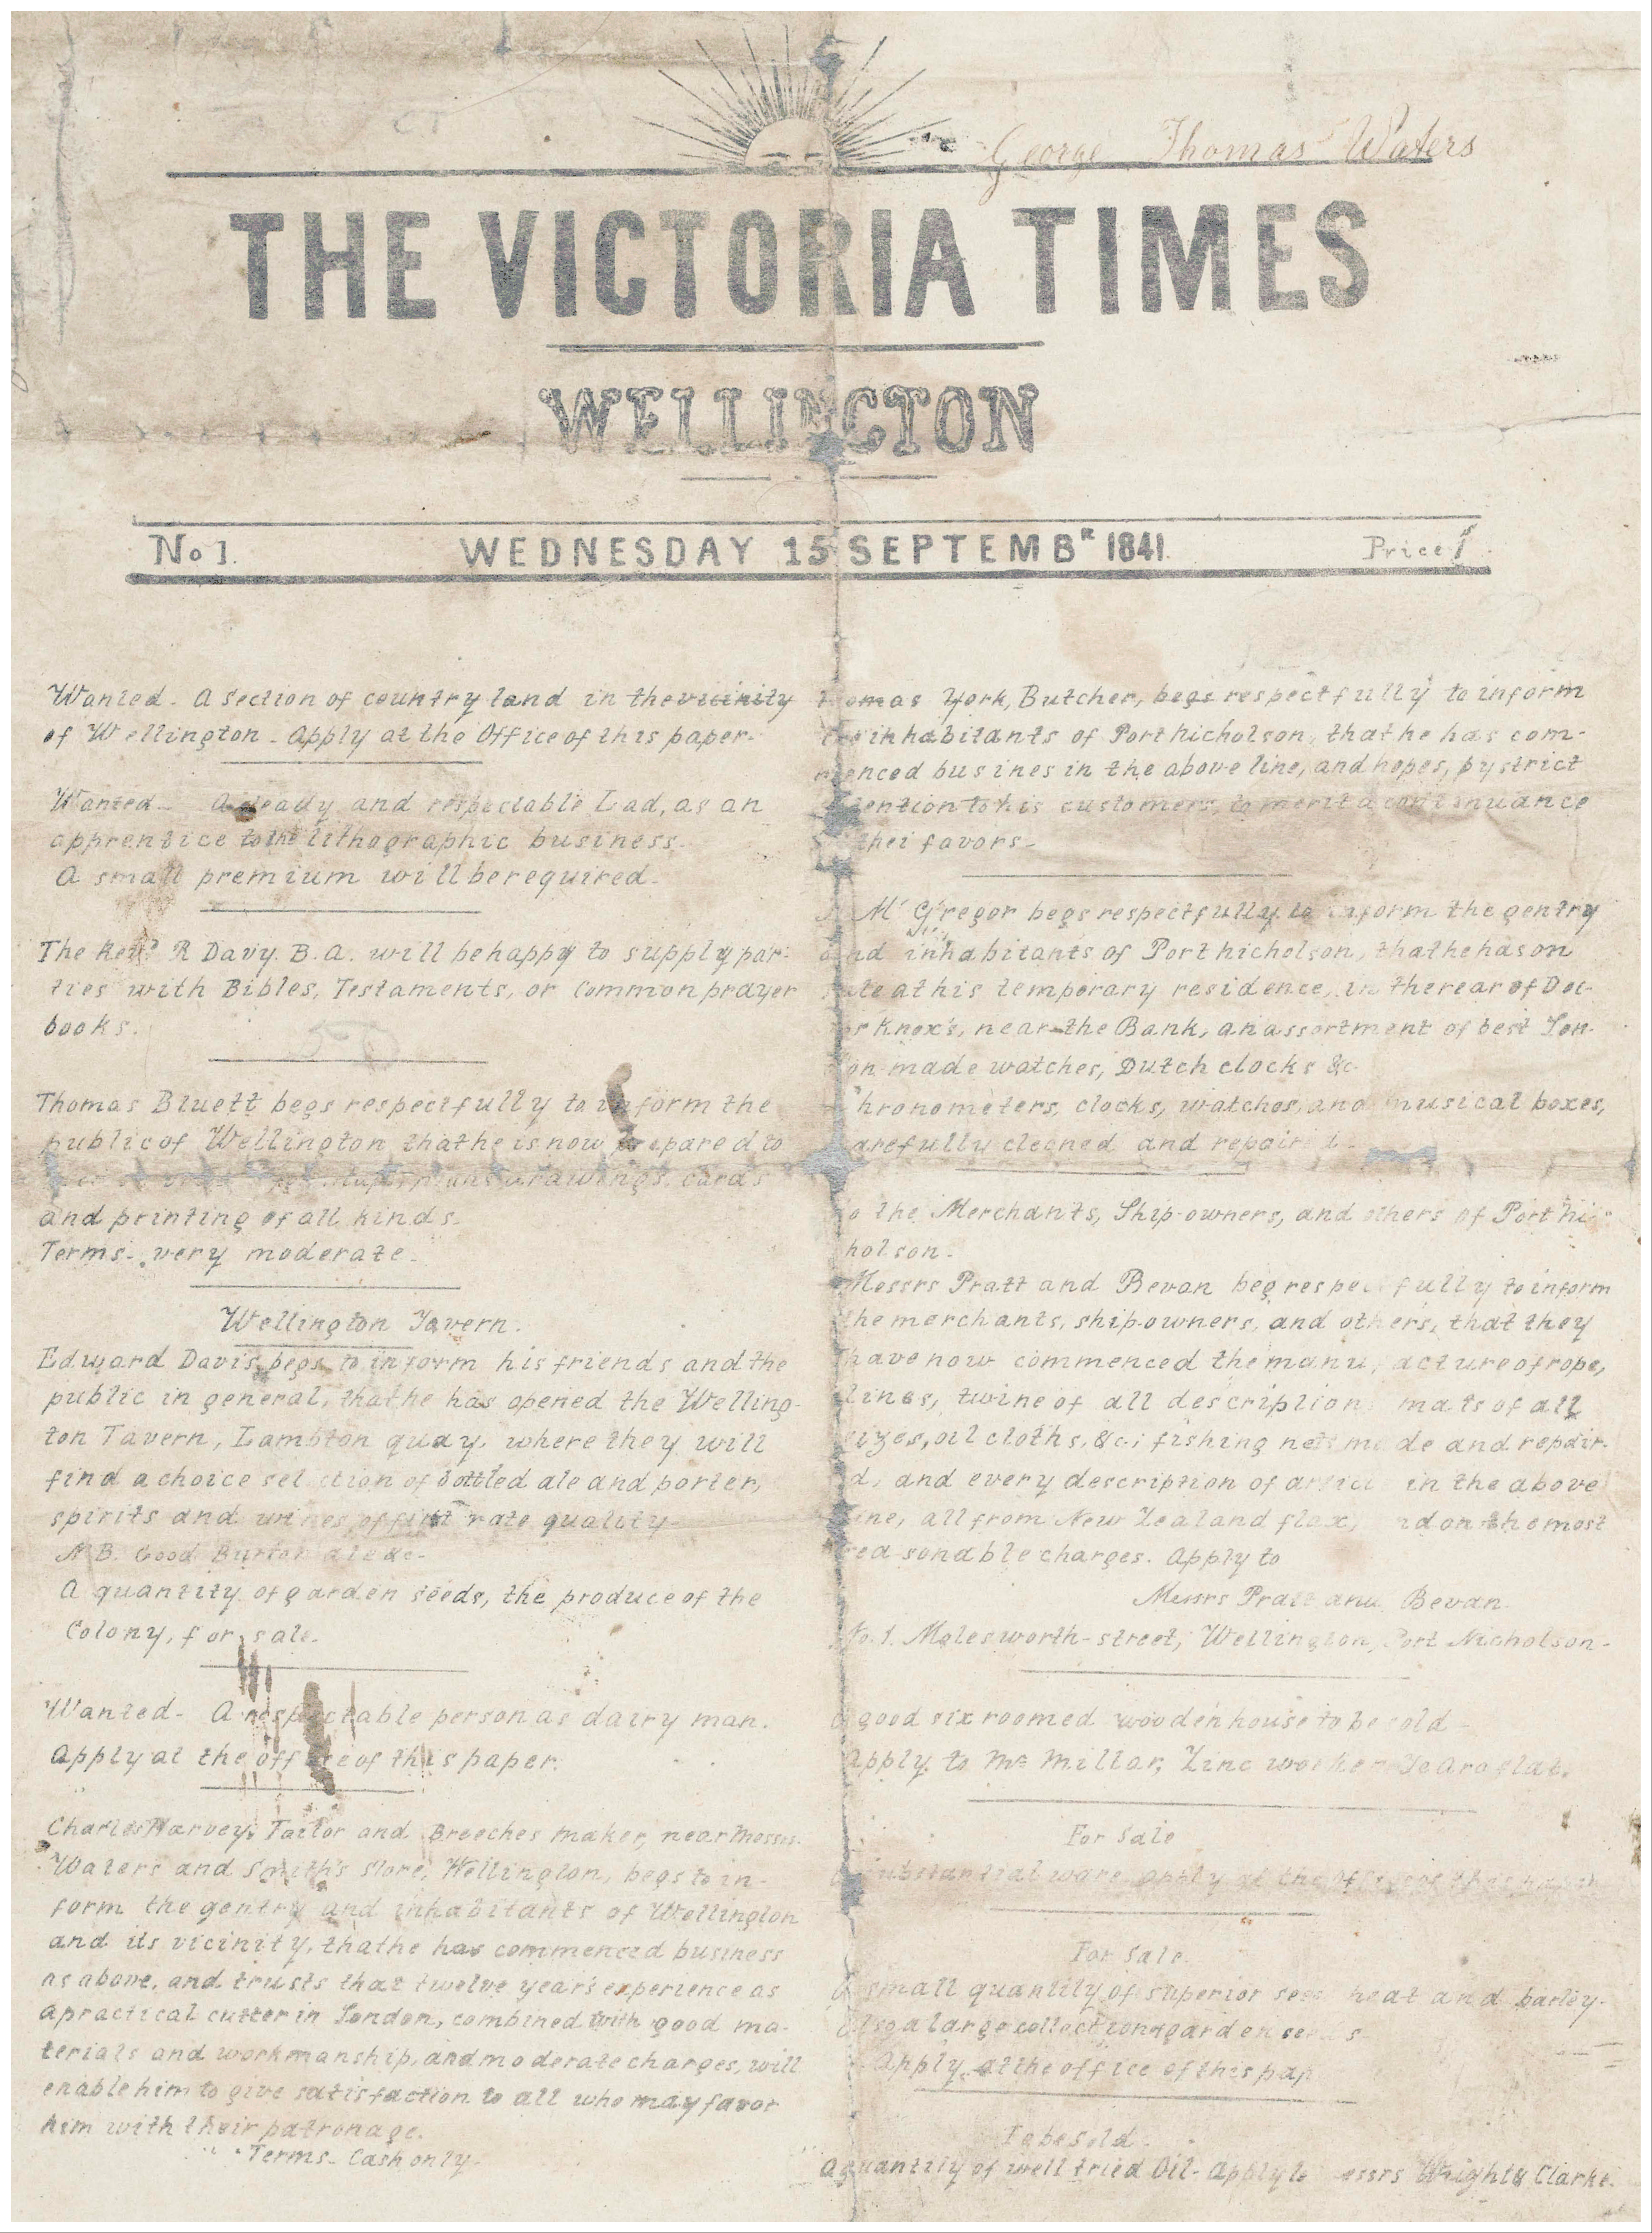 George Thomas Waters
THE VICTORIA TIMES
WELLINGTON
No 1. WEDNESDAY 15 SEPTEMBR 1841. Price 1/.
Wanted - A section of country land in the vicinity
of Wellington - Apply at the Office of this paper.
Wanted - A steady and respectable Lad, as an
apprentice to the lithographic business.
A small premium will be required.
The Revd R Davy. B.A. will be happy to supply par-
ties with Bibles, Testaments, or Common prayer
books.
Thomas Bluett begs respectfully to inform the
public of Wellington that he is now prepared to
plans drawings, cards
and printing of all kinds.
Terms - very moderate.
Wellington Tavern.
Edward Davis, begs to inform his friends and the
public in general, that he has opened the Welling-
ton Tavern, Lambton quay, where they will
find a choice selection of bottled ale and porter,
spirits and wines of first rate quality -
N B. Good Burton ale &c -
A quantity of garden seeds, the produce of the
Colony, for sale.
Wanted - A respectable person as dairy man.
Apply at the office of this paper.
Charles Harvey, Tailor and Breeches maker, near Messrs.
Waters and Smith's store, Wellington, begs to in-
form the gentry and inhabitants of Wellington
and its vicinity, that he has commenced business
as above, and trusts that twelve year's experience as
a practical cutter in London, combined with good ma-
terials and workmanship, and moderate charges, will
enable him to give satisfaction to all who may favor
him with their patronage.
Terms - Cash only -
Thomas York, Butcher, begs respectfully to inform
the inhabitants of Port nicholson, that he has com-
menced busines in the above line, and hopes, by strict
attention to his customers, to merit a continuance
thei favors -
Mc Gregor begs respectfully to inform the gentry
and inhabitants of Port nicholson, that he has on
sale at his temporary residence, in the rear of Doc-
tor Knox's, near the Bank, an assortment of best Lon-
don made watches, Dutch clocks &c -
Chronometers, clocks, watches, and musical boxes,
carefully cleaned and repaired -
To the Merchants, Ship-owners, and others of Port nic-
holson -
Messrs Pratt and Bevan beg respectfully to inform
the merchants, ship-owners, and others, that they
have now commenced the manufacture of rope,
lines, twine of all description, mats of all
sizes, oil cloths, &c; fishing nets made and repair-
ed, and every description of article in the above
line, all from New Zealand flax, and on the most
reasonable charges. Apply to
Messrs Pratt and Bevan.
No. 1. Molesworth-street, Wellington, Port Nicholson -
A good six roomed wooden house to be sold -
Apply to Mr Millar, Zinc worker Te Aro flat.
For Sale
A substantial ware apply at the office of this paper
For Sale.
A small quantity of superior seed wheat and barley.
Also a large collection of garden seeds
Apply at the office of this pap
To be Sold -
A quantity of well tried Oil - Apply to Messrs Wright & Clarke.